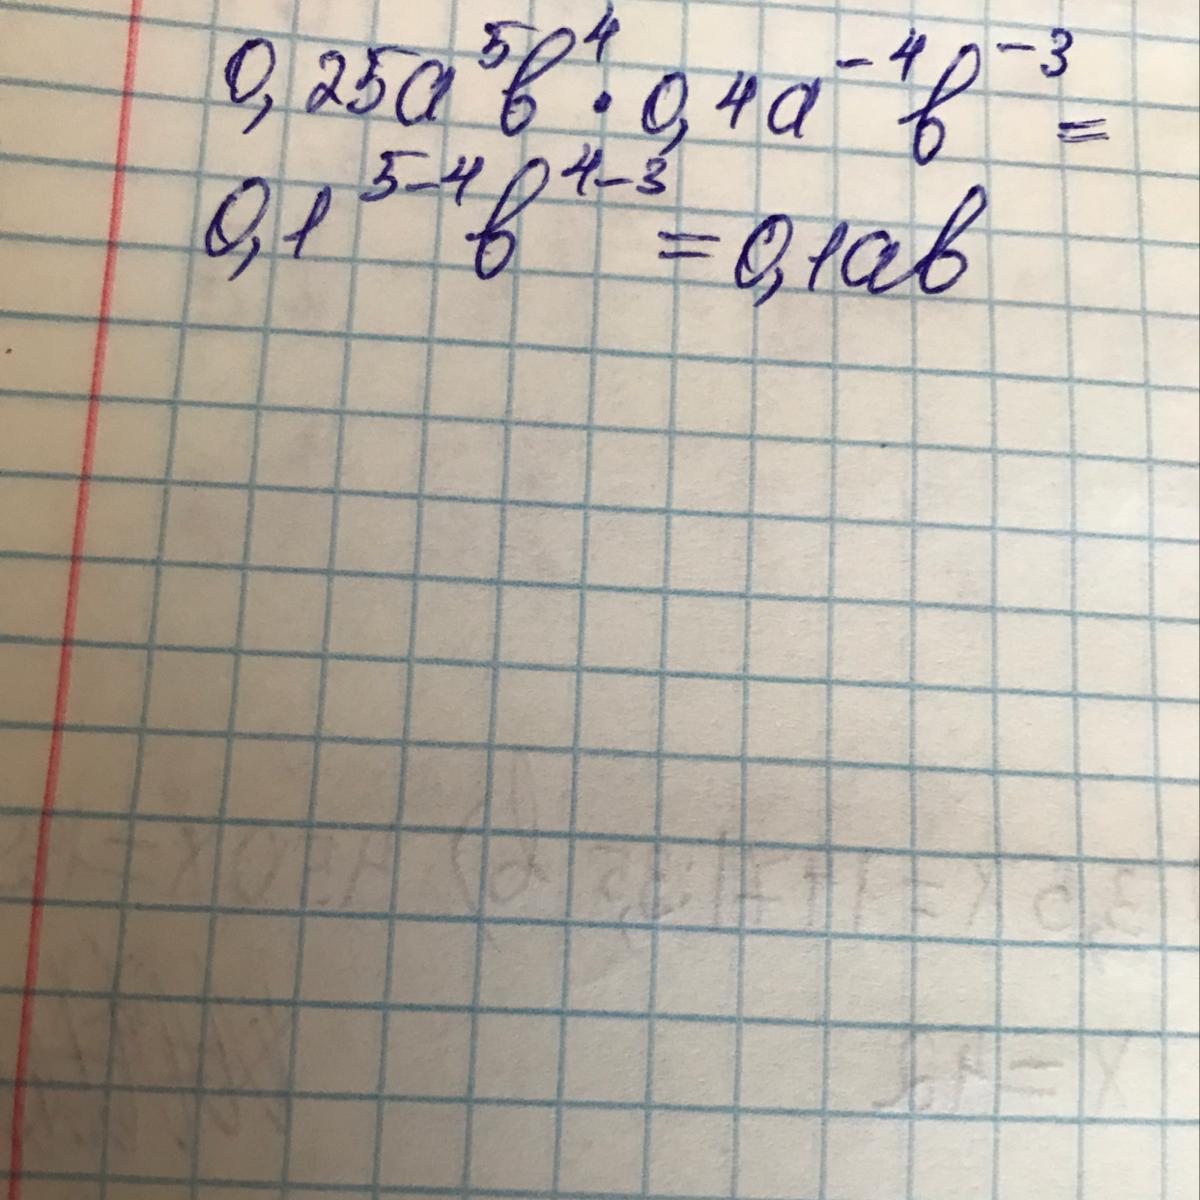 0,25a⁵b⁴ · 0,4a⁻⁴b⁻³ =
0,1⁵⁻⁴b⁴⁻³ = 0,1ab